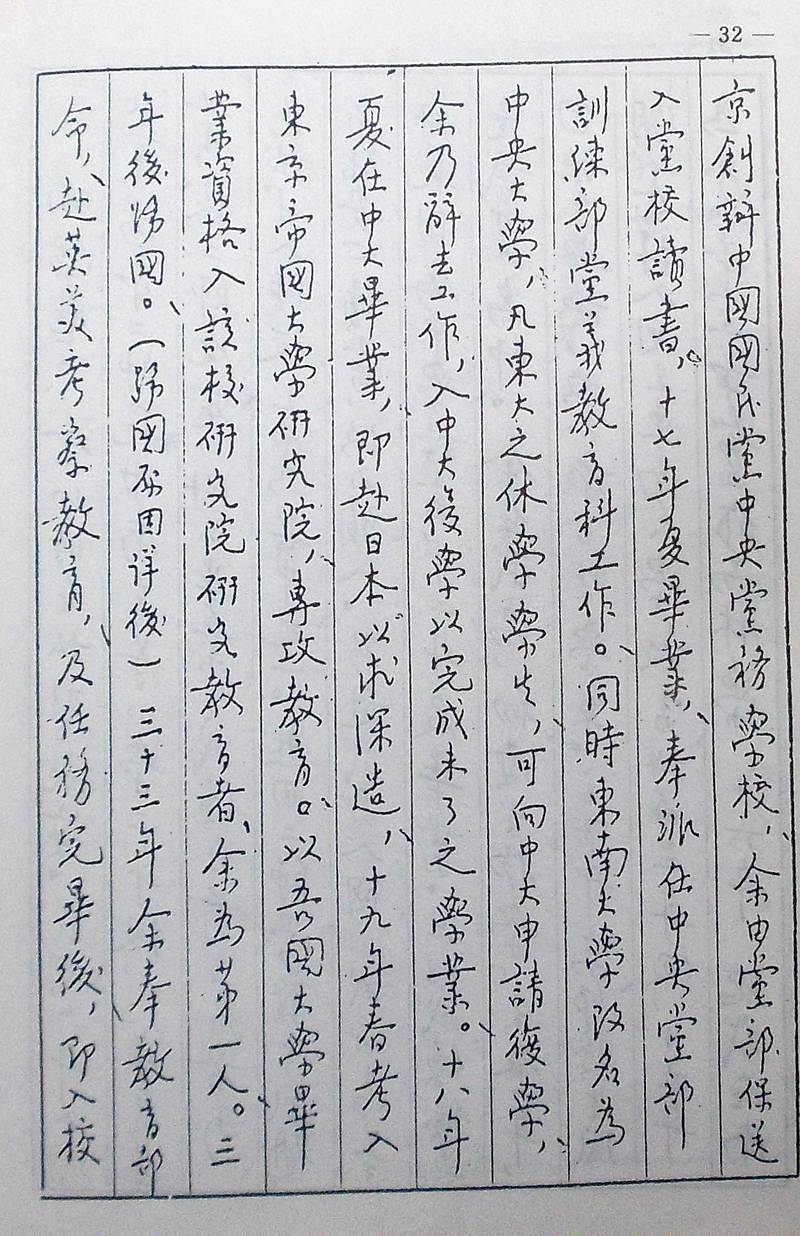 — 32 —
京創辦中國國民黨中央黨務學校，余由黨部保送
入黨校讀書，十七年夏畢業，奉派任中央黨部
訓練部黨義教育科工作。同時東南大學改名為
中央大學，凡東大之休學學生，可向中大申請復學，
余乃辭去工作，入中大復學以完成未了之學業。十八年
夏在中大畢業，即赴日本以求深造，十九年春考入
東京帝國大學研究院，專攻教育。以吾國大學畢
業資格入該校研究院研究教育者，余為第一人。三
年後歸國。（歸國原因詳後）三十三年余奉教育部
命，赴英美考察教育，及任務完畢後，即入校